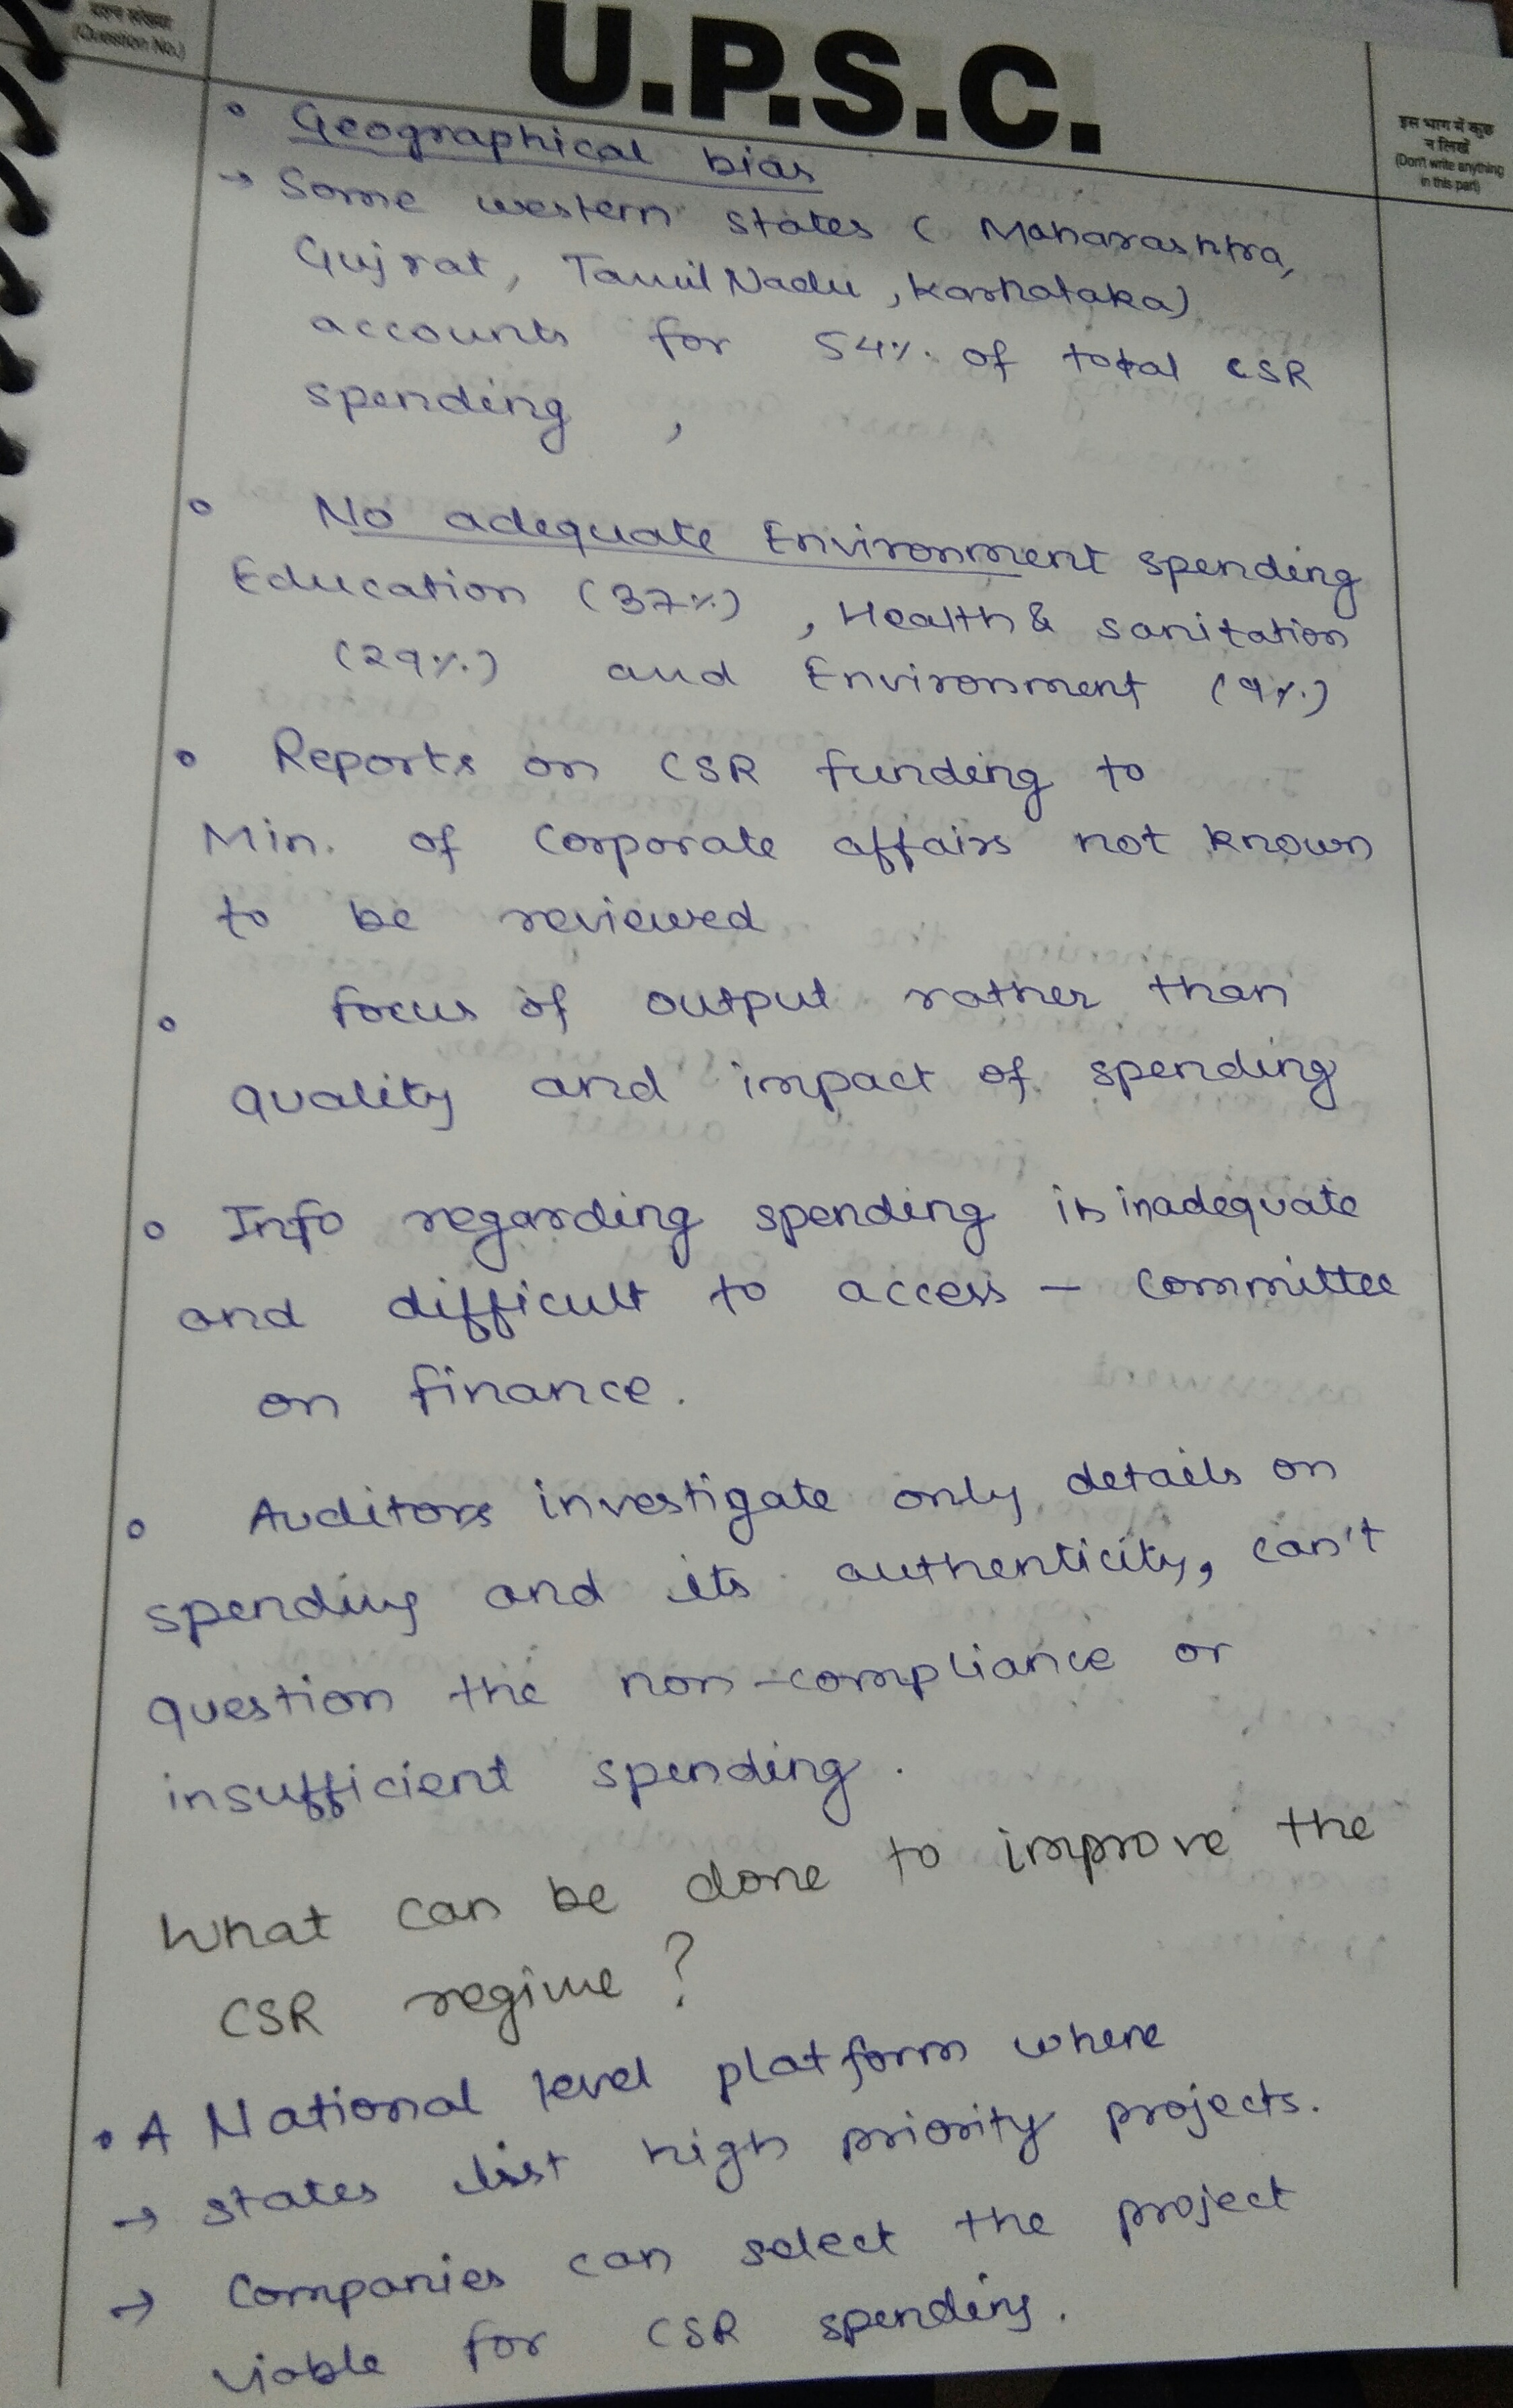 प्रश्न संख्या
(Question No.)
U.P.S.C.
इस भाग में कुछ
न लिखें
(Don't write anything
in this part)
• Geographical bias
→ Some western states ( Maharashtra,
Gujrat, Tamil Nadu, Karnataka)
accounts for 54% of total CSR
spending ,
• No adequate Environment spending
Education (37%) , Health & sanitation
(29%) and Environment (9%)
• Reports on CSR funding to
Min. of Corporate affairs not known
to be reviewed
• focus of output rather than
quality and impact of spending
• Info regarding spending is inadequate
and difficult to access – Committee
on finance.
• Auditors investigate only details on
spending and its authenticity, can't
question the non-compliance or
insufficient spending.
What can be done to improve the
CSR regime ?
• A National level platform where
→ states list high priority projects.
→ Companies can select the project
viable for CSR spending.